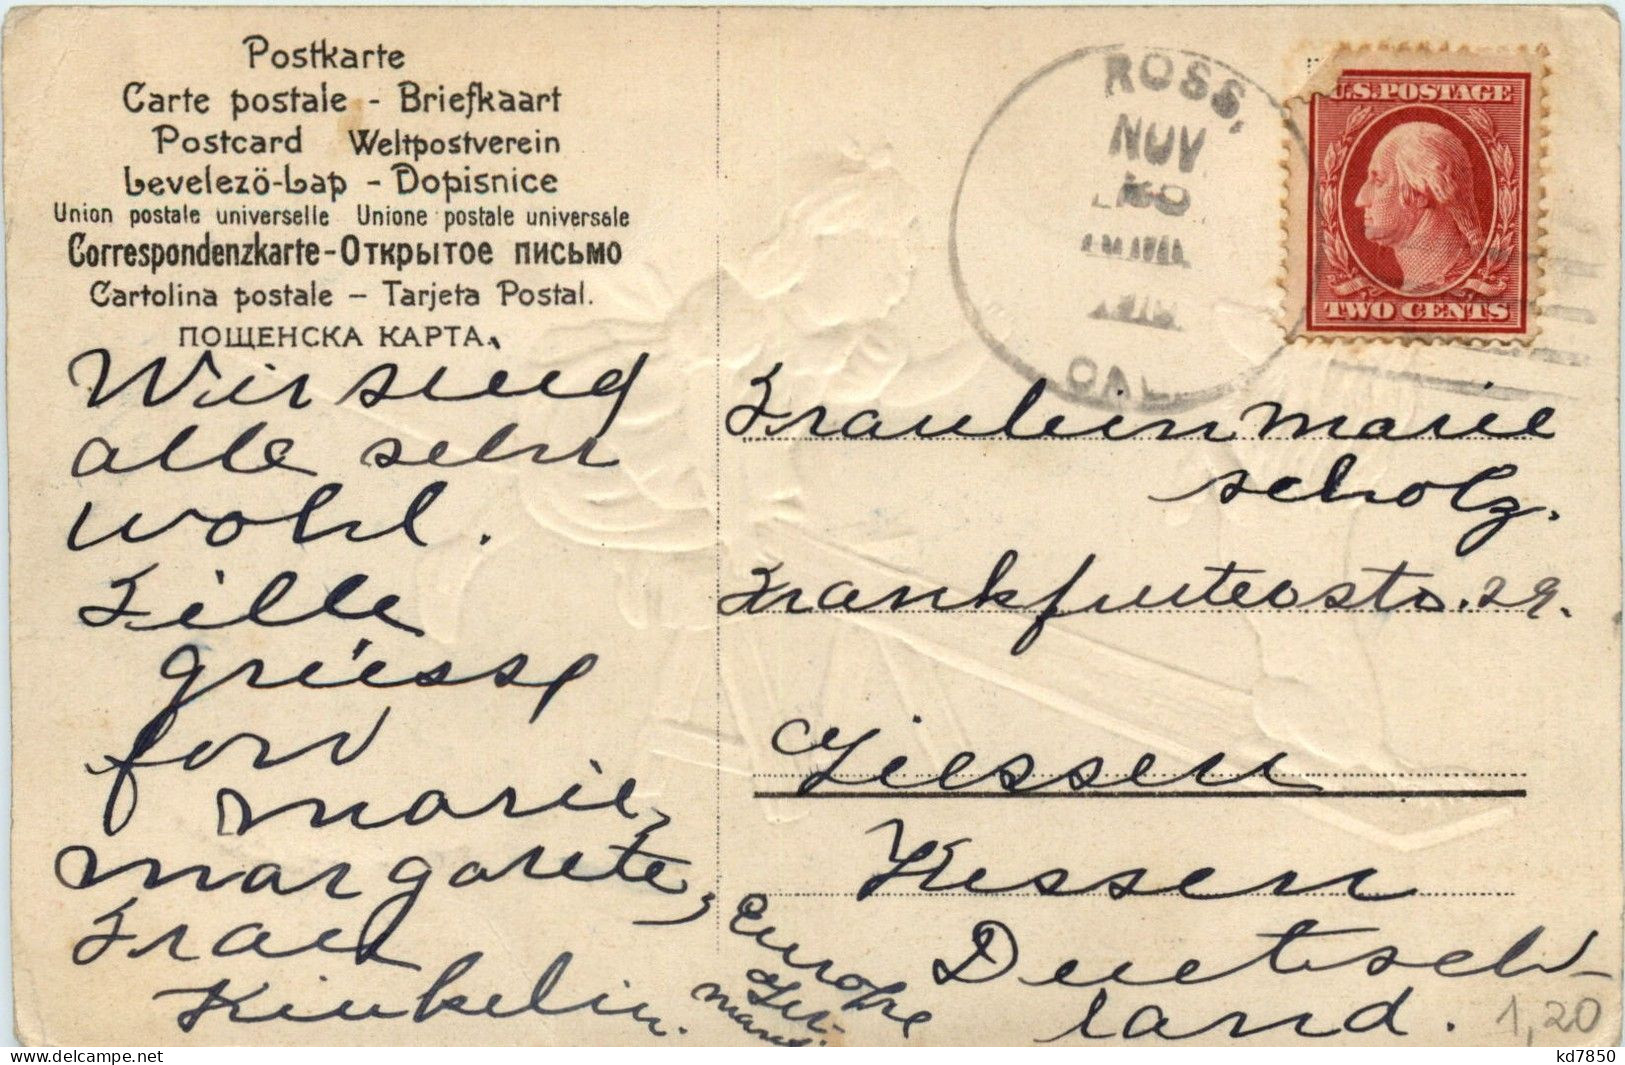 Postkarte
Carte postale - Briefkaart
Postcard Weltpostverein
Levelezö-Lap - Dopisnice
Union postale universelle Unione postale universale
Correspondenzkarte-Открытое письмо
Cartolina postale - Tarjeta Postal.
ПОЩЕНСКА КАРТА.
ROSS,
NOV
30
U.S. POSTAGE
TWO CENTS
Wir sind
alle sehr
wohl.
griesse
von
Marie,
Margarete,
Frau
Kinkelin.
Fraulein Marie
Scholz.
Frankfurterstr. 29.
Giessen
Hessen
Deutsch-
land.
Europe
Ger-
many.
1,20
kd7850